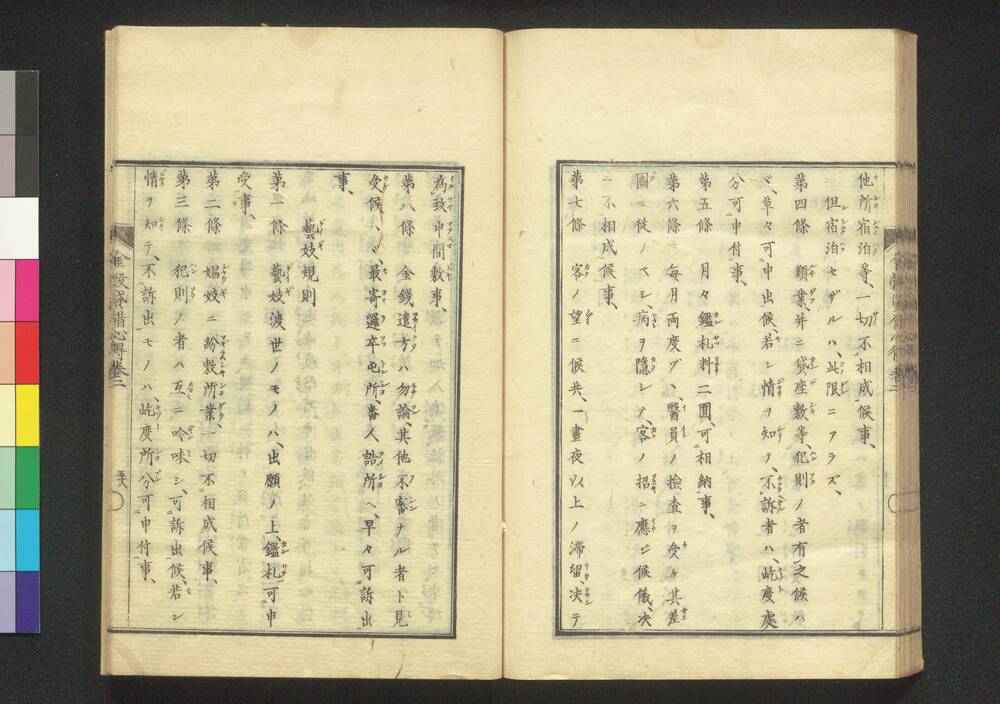 他所宿泊等、一切不相成候事、
但宿泊セザルハ、此限ニアラズ、
第四條 類業并ニ貸座敷等、犯則ノ者有之候ハ
ヾ、草々可申出候、若シ情ヲ知テ、不訴者ハ、屹度處
分可申付事、
第五條 月々鑑札料二圓、可相納事、
第六條 毎月両度ヅヽ、醫員ノ撿査ヲ受ケ其差
圖ニ従ノベシ、病ヲ隠シテ、客ノ招ニ應ジ候儀、决
ニ不相成候事、
第七條 客ノ望ニ候共、一晝夜以上ノ滞留、决テ
為致申間敷事、
第八條 金錢遣方ハ勿論、其他不審ナル者ト見
受候ハヾ、最寄邏卒屯所、番人詰所ヘ、早々可訴出
事、
藝妓規則
第一條 藝妓渡世ノモノハ、出願ノ上、鑑札可申
受事、
第二條 娼妓ニ紛敷所業、一切不相成候事、
第三條 犯則ノ者ハ互ニ吟味シ、可訴出候、若シ
情ヲ知テ、不訴出モノハ、屹度所分可申付事、
心得巻二